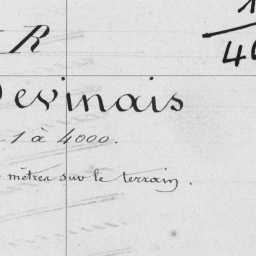 R
Devinais
1 à 4000.
mètres sur le terrain.